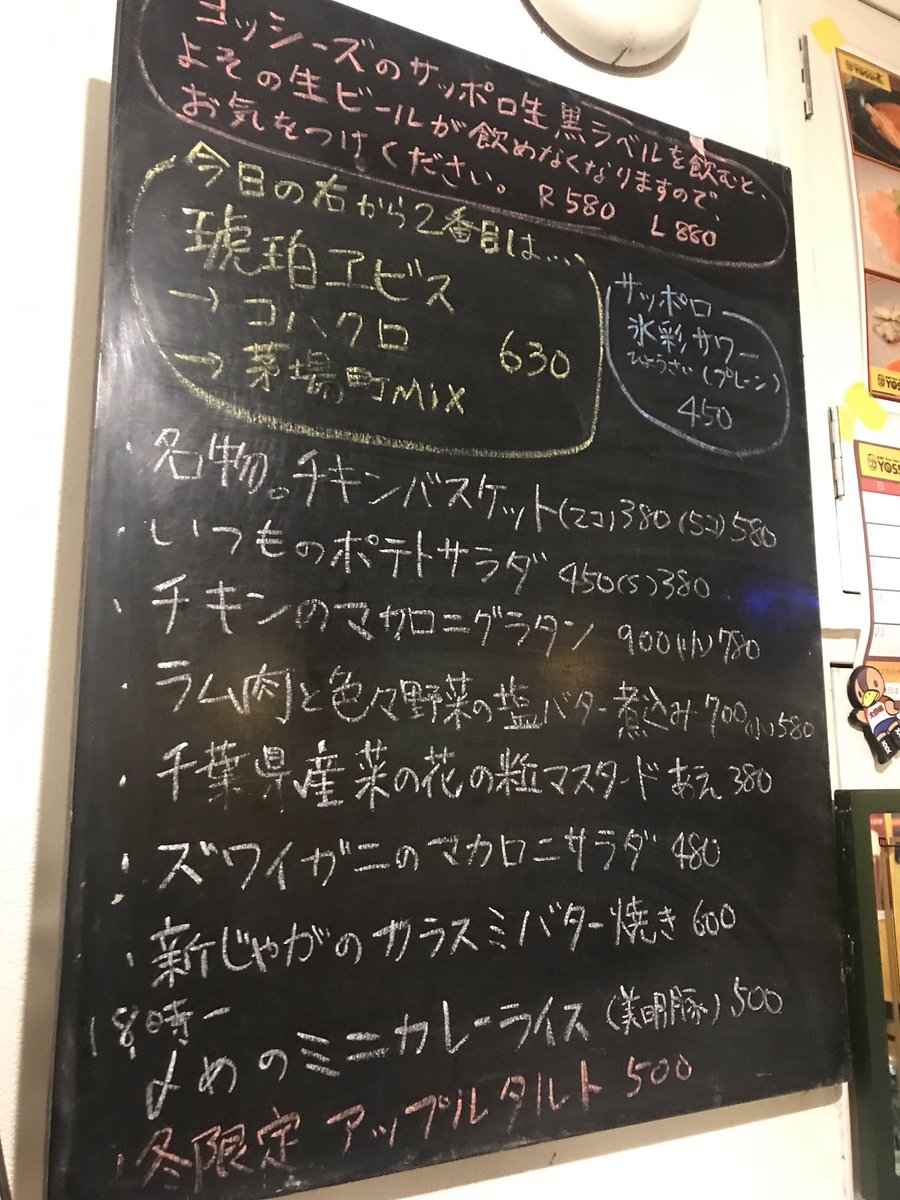 ヨッシーズのサッポロ生黒ラベルを飲むと、
よその生ビールが飲めなくなりますので、
お気をつけください。 R580 L880
今日の右から2番目は....
琥珀ヱビス
→コハクロ 630
→茅場町Mix
サッポロ
氷彩サワー
ひょうさい(プレーン)
450
・名物。チキンバスケット(2コ)380 (5コ)580
・いつものポテトサラダ 450(S)380
・チキンのマカロニグラタン 900(小)780
・ラム肉と色々野菜の塩バター煮込み700(小)580
・千葉県産菜の花の粒マスタードあえ 380
・ズワイガニのマカロニサラダ 480
・新じゃがのカラスミバター焼き 600
18時〜
〆めのミニカレーライス(美明豚)500
・冬限定 アップルタルト 500